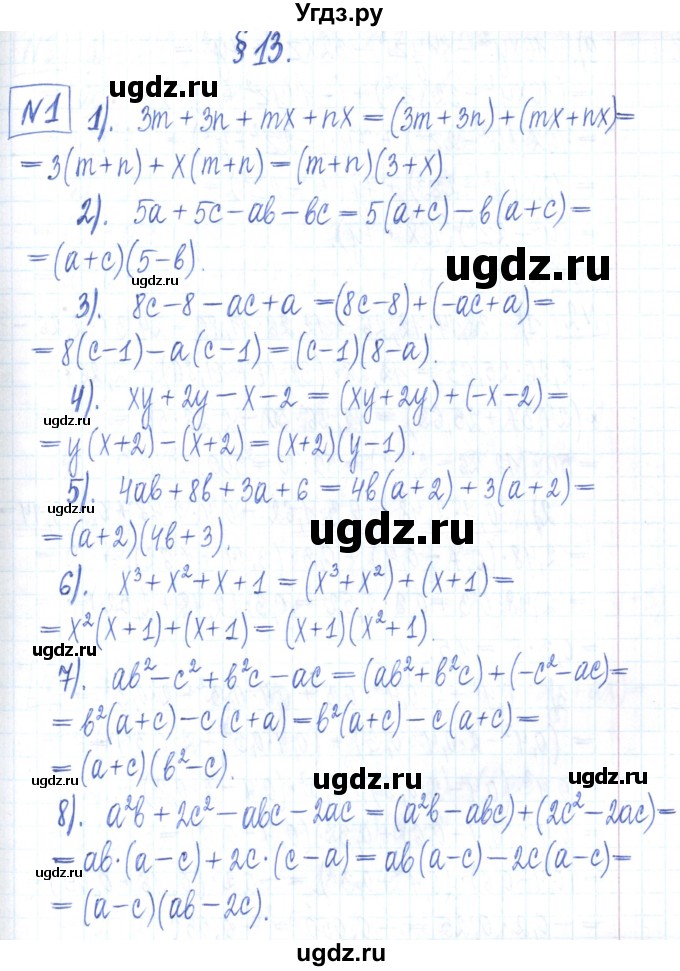 Угдз.ру
§ 13.
ugdz.ru
N1 1). 3m + 3n + mx + nx = (3m + 3n) + (mx + nx) =
= 3(m + n) + x(m + n) = (m + n)(3 + x).
ugdz.ru
2). 5a + 5c - ab - bc = 5(a + c) - b(a + c) =
= (a + c)(5 - b).
ugdz.ru
ugdz.ru
3). 8c - 8 - ac + a = (8c - 8) + (-ac + a) =
= 8(c - 1) - a(c - 1) = (c - 1)(8 - a).
4). xy + 2y - x - 2 = (xy + 2y) + (-x - 2) =
ugdz.ru
= y(x + 2) - (x + 2) = (x + 2)(y - 1).
5). 4ab + 8b + 3a + 6 = 4b(a + 2) + 3(a + 2) =
ugdz.ru
ugdz.ru
= (a + 2)(4b + 3).
6). x³ + x² + x + 1 = (x³ + x²) + (x + 1) =
= x²(x + 1) + (x + 1) = (x + 1)(x² + 1).
ugdz.ru
7). ab² - c² + b²c - ac = (ab² + b²c) + (-c² - ac) =
= b²(a + c) - c(c + a) = b²(a + c) - c(a + c) =
= (a + c)(b² - c).
ugdz.ru
ugdz.ru
ugdz.ru
8). a²b + 2c² - abc - 2ac = (a²b - abc) + (2c² - 2ac) =
= ab·(a - c) + 2c·(c - a) = ab(a - c) - 2c(a - c) =
ugdz.ru
= (a - c)(ab - 2c).
ugdz.ru